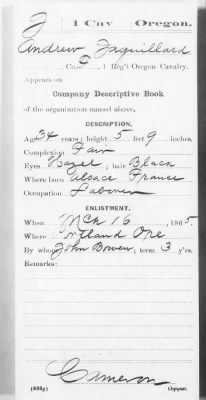 J 1 Cav Oregon.
Andrew Jaquillard
, Co. G, 1 Reg't Oregon Cavalry.
Appears on
Company Descriptive Book
of the organization named above.
DESCRIPTION.
Age 34 years; height 5 feet 9 inches.
Complexion Fair
Eyes Hazel; hair Black
Where born Alsace France
Occupation Laborer
ENLISTMENT.
When Mch 16, 1865.
Where Portland Ore
By whom John Bowen; term 3 y'rs.
Remarks:
Cameron
(383g) Copyist.